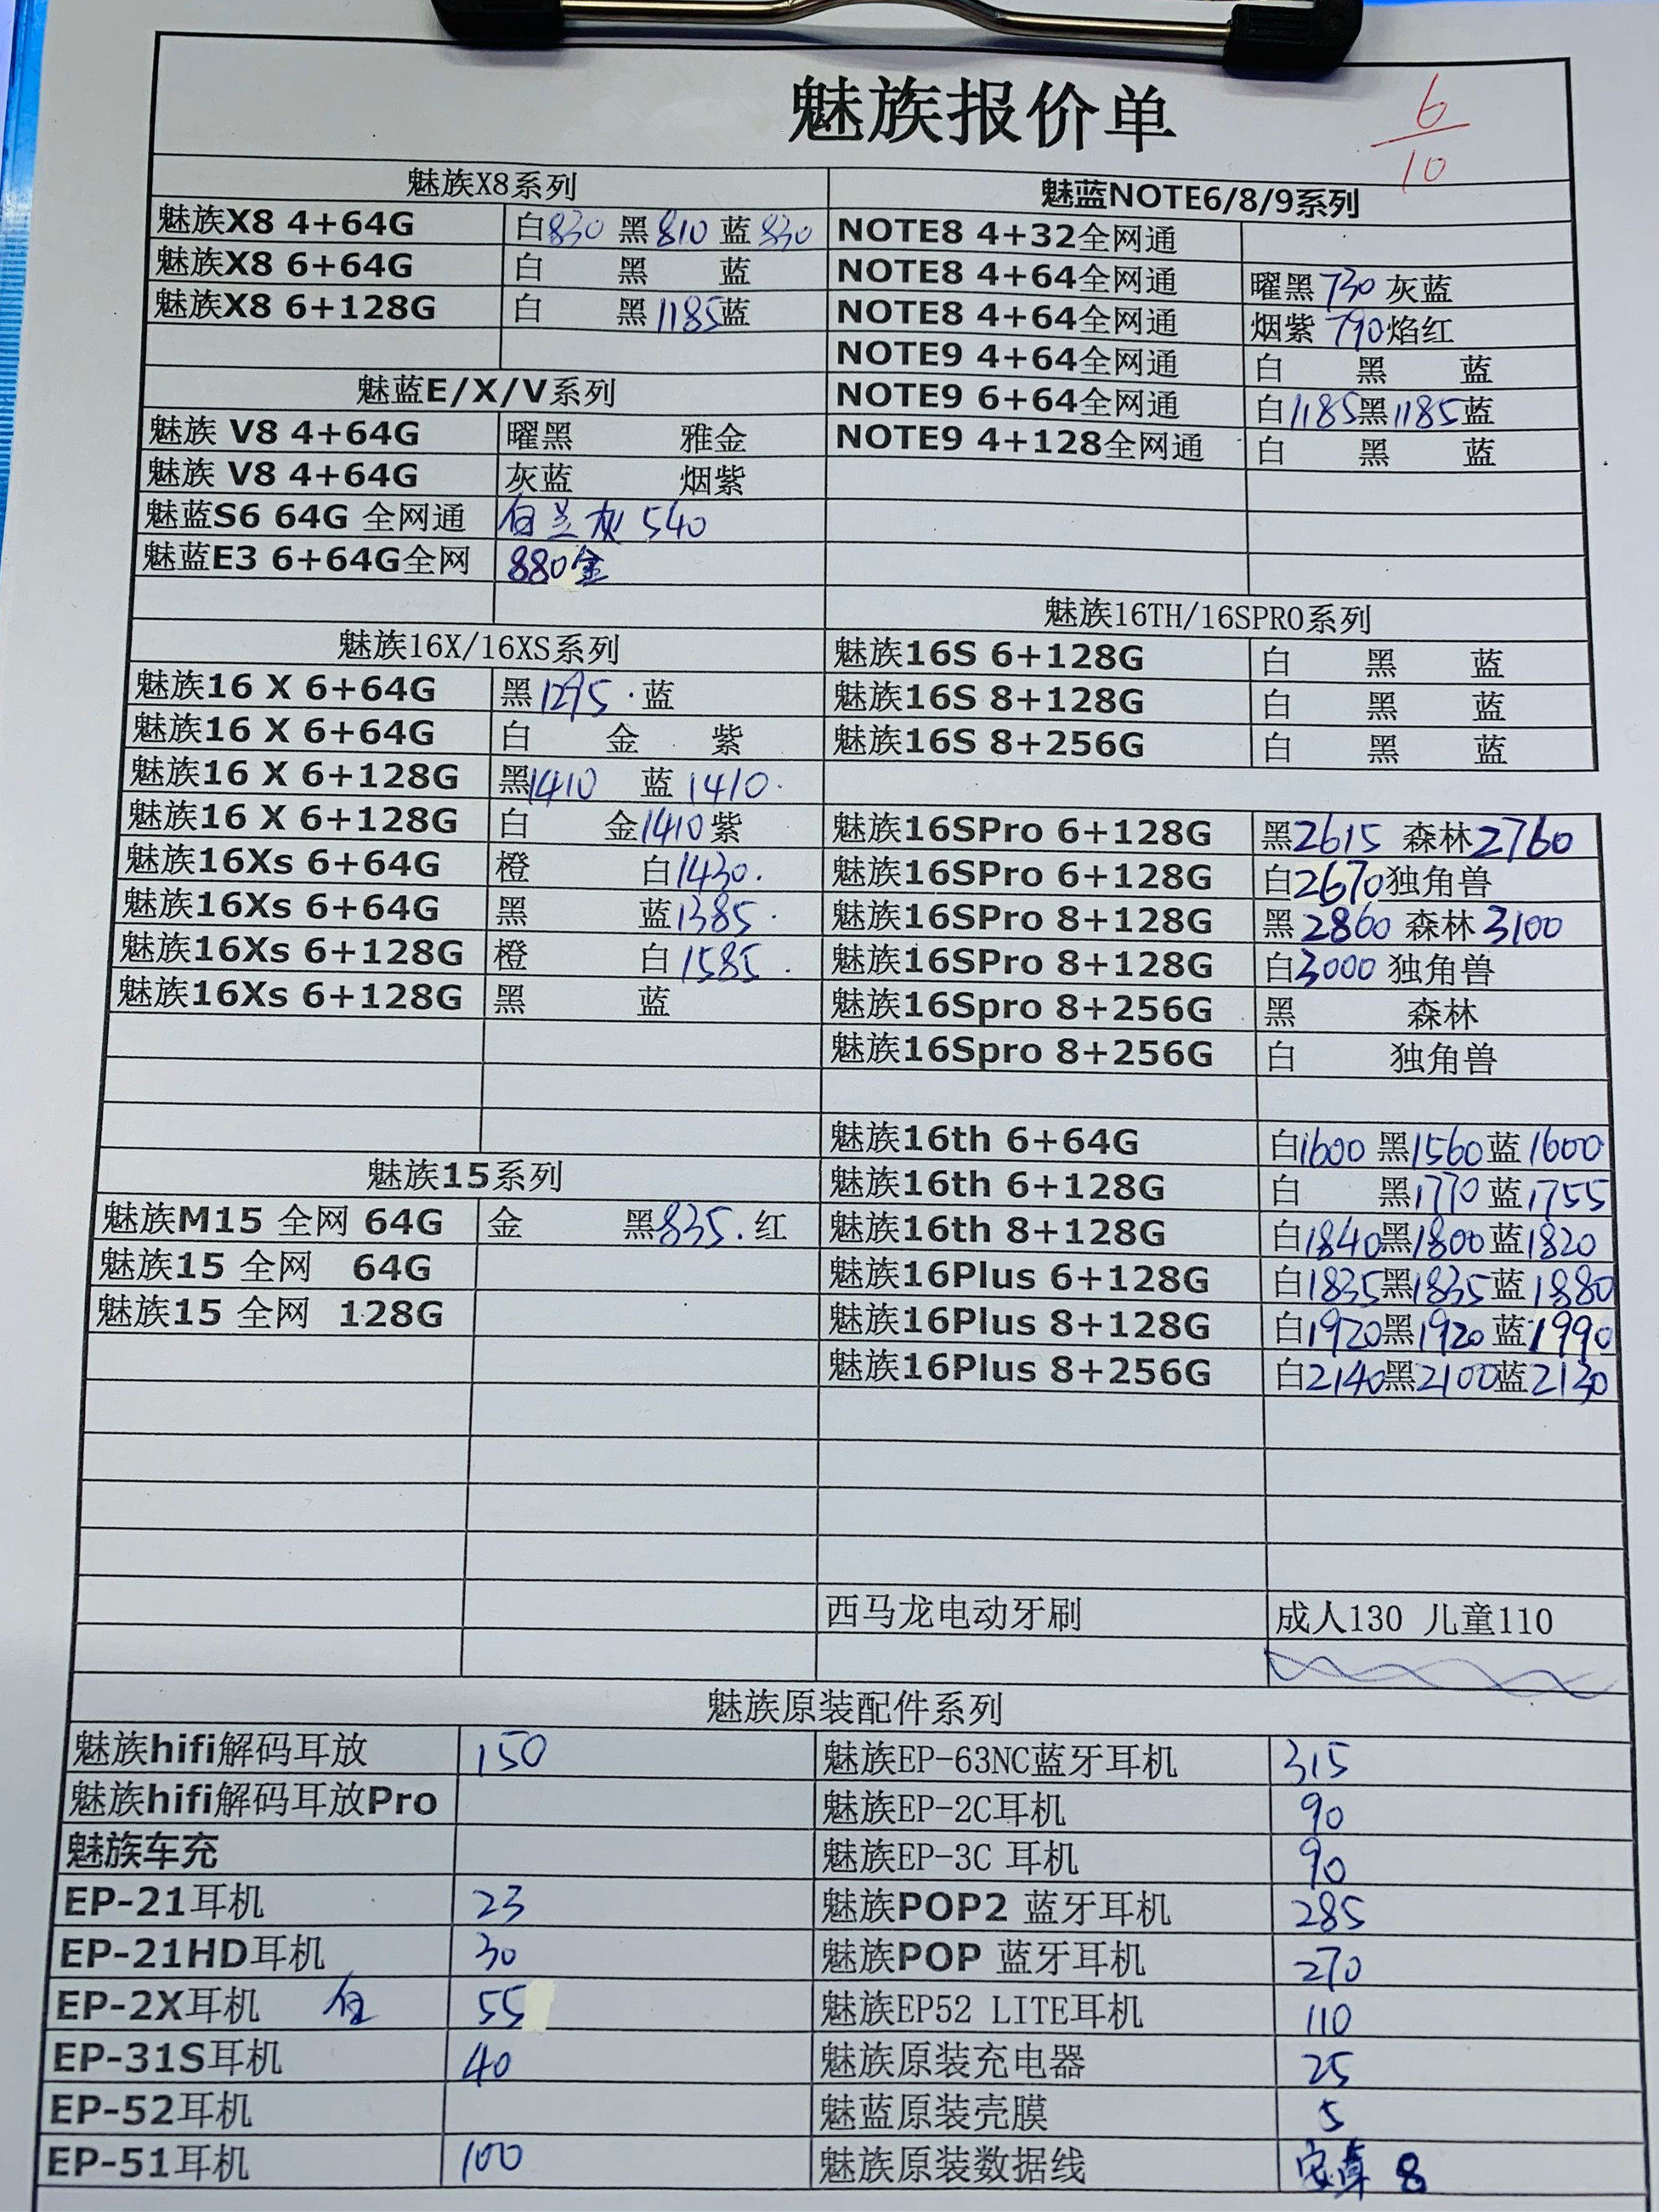 魅族报价单
6/10
魅族X8系列
魅族X8 4+64G 白830 黑810 蓝830
魅族X8 6+64G 白 黑 蓝
魅族X8 6+128G 白 黑1185蓝
魅蓝E/X/V系列
魅族 V8 4+64G 曜黑 雅金
魅族 V8 4+64G 灰蓝 烟紫
魅蓝S6 64G 全网通 白兰灰 540
魅蓝E3 6+64G全网 880金
魅族16X/16XS系列
魅族16 X 6+64G 黑1295. 蓝
魅族16 X 6+64G 白 金 紫
魅族16 X 6+128G 黑1410 蓝1410.
魅族16 X 6+128G 白 金1410紫
魅族16Xs 6+64G 橙 白1430.
魅族16Xs 6+64G 黑 蓝1385.
魅族16Xs 6+128G 橙 白1585.
魅族16Xs 6+128G 黑 蓝
魅族15系列
魅族M15 全网 64G 金 黑835.红
魅族15 全网 64G
魅族15 全网 128G
魅蓝NOTE6/8/9系列
NOTE8 4+32全网通
NOTE8 4+64全网通 曜黑730 灰蓝
NOTE8 4+64全网通 烟紫 790焰红
NOTE9 4+64全网通 白 黑 蓝
NOTE9 6+64全网通 白1185黑1185蓝
NOTE9 4+128全网通 白 黑 蓝
魅族16TH/16SPRO系列
魅族16S 6+128G 白 黑 蓝
魅族16S 8+128G 白 黑 蓝
魅族16S 8+256G 白 黑 蓝
魅族16SPro 6+128G 黑2615 森林2760
魅族16SPro 6+128G 白2670独角兽
魅族16SPro 8+128G 黑2860 森林3100
魅族16SPro 8+128G 白3000 独角兽
魅族16Spro 8+256G 黑 森林
魅族16Spro 8+256G 白 独角兽
魅族16th 6+64G 白1600 黑1560蓝1600
魅族16th 6+128G 白 黑1770 蓝1755
魅族16th 8+128G 白1840黑1800蓝1820
魅族16Plus 6+128G 白1835黑1835蓝1880
魅族16Plus 8+128G 白1920黑1920蓝1990
魅族16Plus 8+256G 白2140黑2100蓝2130
西马龙电动牙刷 成人130 儿童110
魅族原装配件系列
魅族hifi解码耳放 150
魅族hifi解码耳放Pro
魅族车充
EP-21耳机 23
EP-21HD耳机 30
EP-2X耳机 白 55
EP-31S耳机 40
EP-52耳机
EP-51耳机 100
魅族EP-63NC蓝牙耳机 315
魅族EP-2C耳机 90
魅族EP-3C 耳机 90
魅族POP2 蓝牙耳机 285
魅族POP 蓝牙耳机 270
魅族EP52 LITE耳机 110
魅族原装充电器 25
魅蓝原装壳膜 5
魅族原装数据线 安卓 8